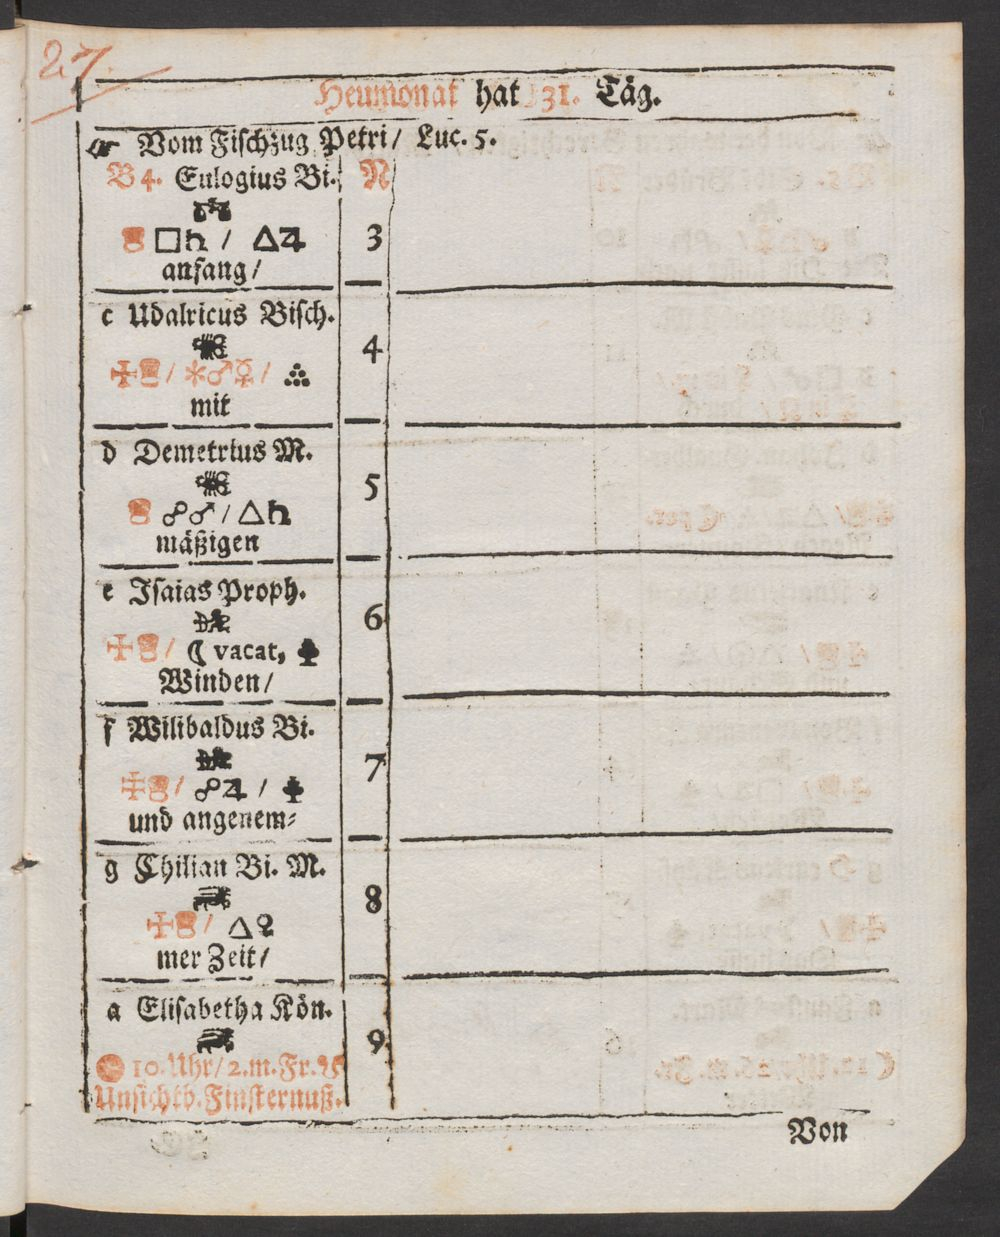 27.
Heumonat hat 31. Täg.
☞ Vom Fischzug Petri / Luc. 5.
B 4. Eulogius Bi. N
□♄ / △♃ 3
anfang /
c Udalricus Bisch.
/ ⚹♂☿ / 4
mit
d Demetrius M.
☍♂ / △♄ 5
mäßigen
e Isaias Proph.
/ ☾ vacat, 6
Winden /
f Wilibaldus Bi.
/ ☍♃ / 7
und angenem⸗
g Chilian Bi. M.
/ △♀ 8
mer Zeit /
a Elisabetha Kön.
9
10. Uhr / 2. m. Fr.
Unsichtb. Finsternuß.
Von